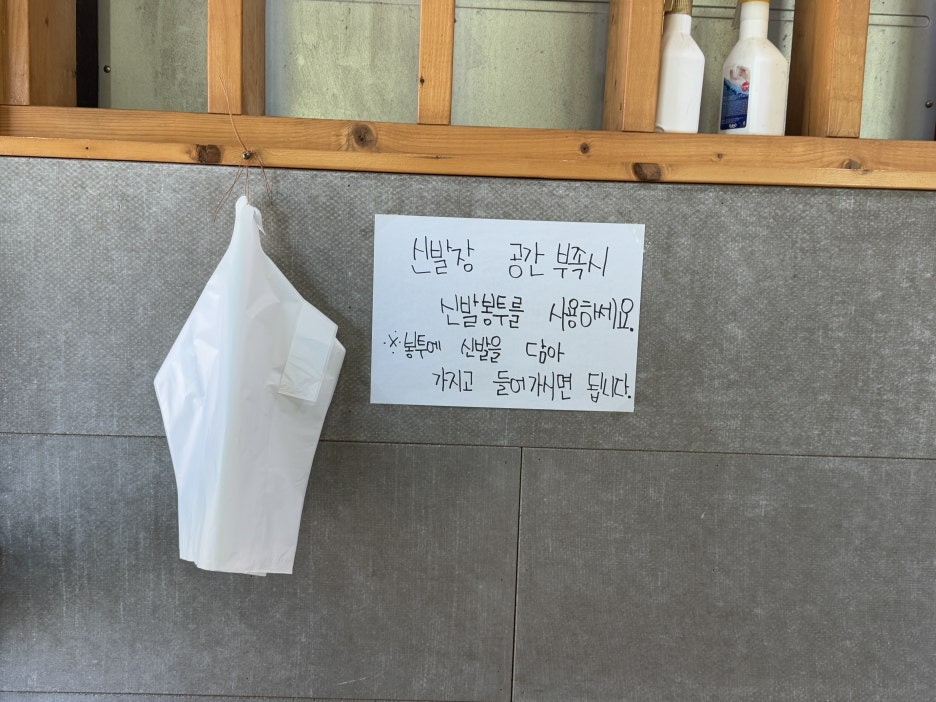 신발장 공간 부족시
신발봉투를 사용하세요.
※봉투에 신발을 담아
가지고 들어가시면 됩니다.